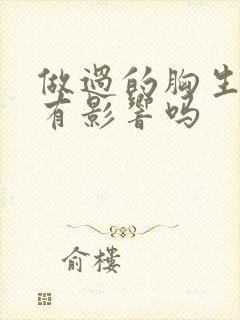 做過的胸生
有影響嗎
俞樓